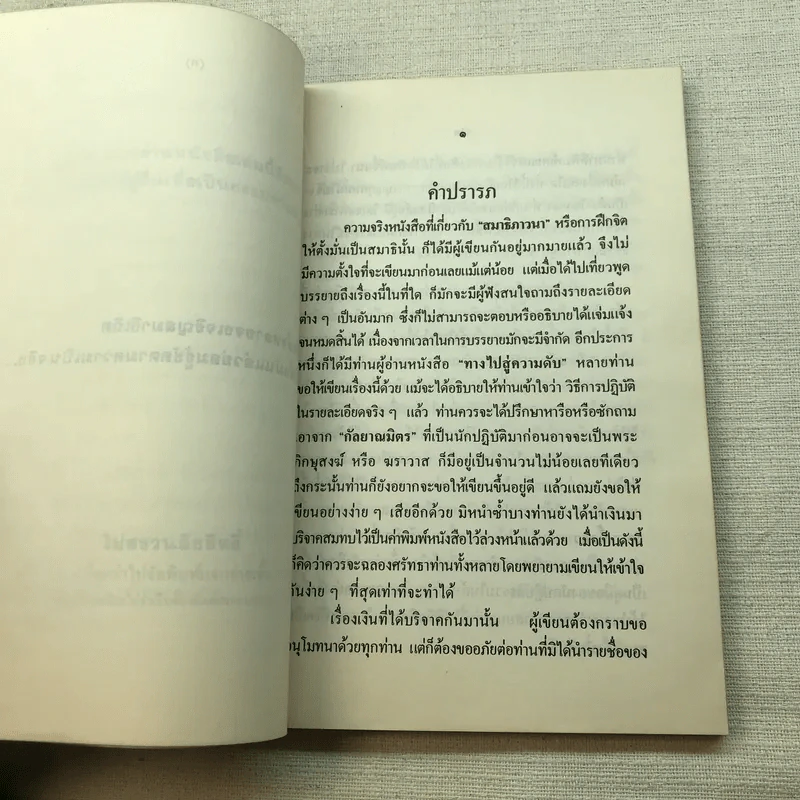 ๑
คำปรารภ
ความจริงหนังสือที่เกี่ยวกับ “สมาธิภาวนา” หรือการฝึกจิต
ให้ตั้งมั่นเป็นสมาธินั้น ก็ได้มีผู้เขียนกันอยู่มากมายแล้ว จึงไม่
มีความตั้งใจที่จะเขียนมาก่อนเลยแม้แต่น้อย แต่เมื่อได้ไปเที่ยวพูด
บรรยายถึงเรื่องนี้ในที่ใด ก็มักจะมีผู้ฟังสนใจถามถึงรายละเอียด
ต่าง ๆ เป็นอันมาก ซึ่งก็ไม่อาจจะตอบหรืออธิบายได้แจ่มแจ้ง
จนหมดสิ้นได้ เนื่องจากเวลาในการบรรยายมักจะมีจำกัด อีกประการ
หนึ่งก็ได้มีท่านผู้อ่านหนังสือ “ทางไปสู่ความดับ” หลายท่าน
ขอให้เขียนเรื่องนี้ด้วย แม้จะได้อธิบายให้ท่านเข้าใจว่า วิธีการปฏิบัติ
ในรายละเอียดจริง ๆ แล้ว ท่านควรจะได้ปรึกษาหารือหรือซักถาม
เอาจาก “กัลยาณมิตร” ที่เป็นนักปฏิบัติมาก่อนอาจจะเป็นพระ
ภิกษุสงฆ์ หรือ ฆราวาส ก็มีอยู่เป็นจำนวนไม่น้อยเลยทีเดียว
ถึงกระนั้นท่านก็ยังอยากจะขอให้เขียนขึ้นอยู่ดี แล้วแถมยังขอให้
เขียนอย่างง่าย ๆ เสียอีกด้วย มิหนำซ้ำบางท่านยังได้นำเงินมา
บริจาคสมทบไว้เป็นค่าพิมพ์หนังสือไว้ล่วงหน้าแล้วด้วย เมื่อเป็นดังนี้
ก็คิดว่าควรจะฉลองศรัทธาท่านทั้งหลายโดยพยายามเขียนให้เข้าใจ
กันง่าย ๆ ที่สุดเท่าที่จะทำได้
เรื่องเงินที่ได้บริจาคกันมานั้น ผู้เขียนต้องกราบขอ
อนุโมทนาด้วยทุกท่าน แต่ก็ต้องขออภัยต่อท่านที่มิได้นำรายชื่อของ